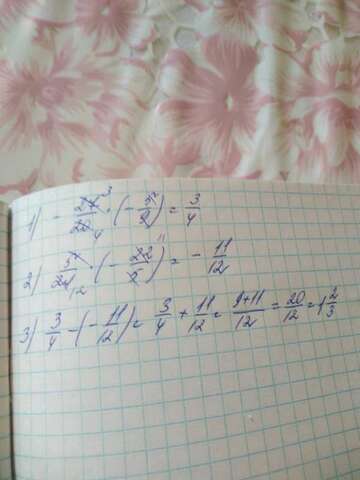 1) - 27/20 · (- 5/9) = 3/4
2) 5/24 · (- 22/5) = - 11/12
3) 3/4 - (- 11/12) = 3/4 + 11/12 = 9+11/12 = 20/12 = 1 2/3